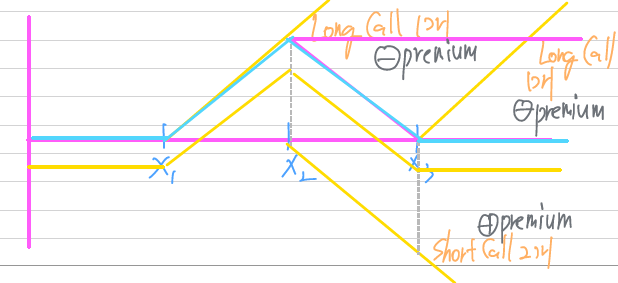 Long Call 1개
⊖premium
Long Call
1개
⊖premium
X₁
X₂
X₃
⊕premium
Short Call 2개